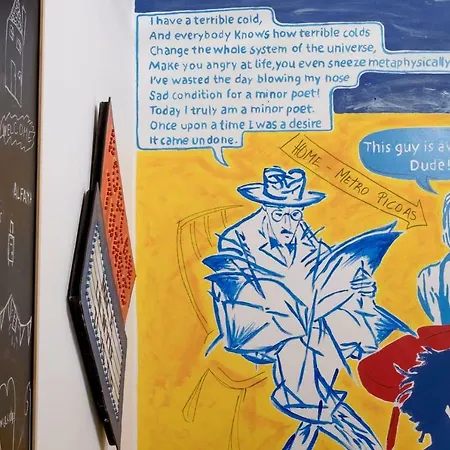 I have a terrible cold,
And everybody knows how terrible colds
Change the whole system of the universe,
Make you angry at life, you even sneeze metaphysically
I've wasted the day blowing my nose
Sad condition for a minor poet!
Today I truly am a minor poet.
Once upon a time I was a desire
It came undone.
This guy is
Dude!
HOME - METRO PICOAS
WELCOME
ALFAMA